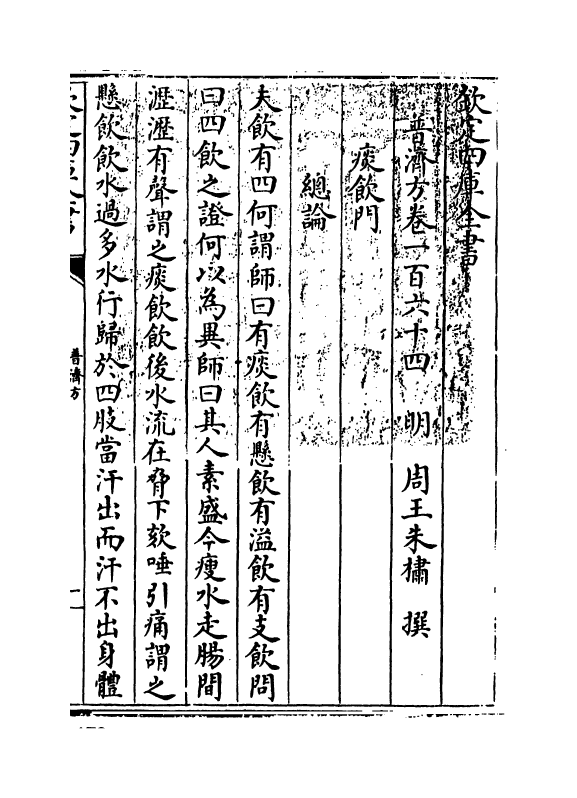 欽定四庫全書
普濟方卷一百六十四　明　周王朱橚　撰
痰飲門
總論
夫飲有四何謂師曰有痰飲有懸飲有溢飲有支飲問
曰四飲之證何以為異師曰其人素盛今瘦水走腸間
瀝瀝有聲謂之痰飲飲後水流在脅下欬唾引痛謂之
懸飲飲水過多水行歸於四肢當汗出而汗不出身體
普濟方